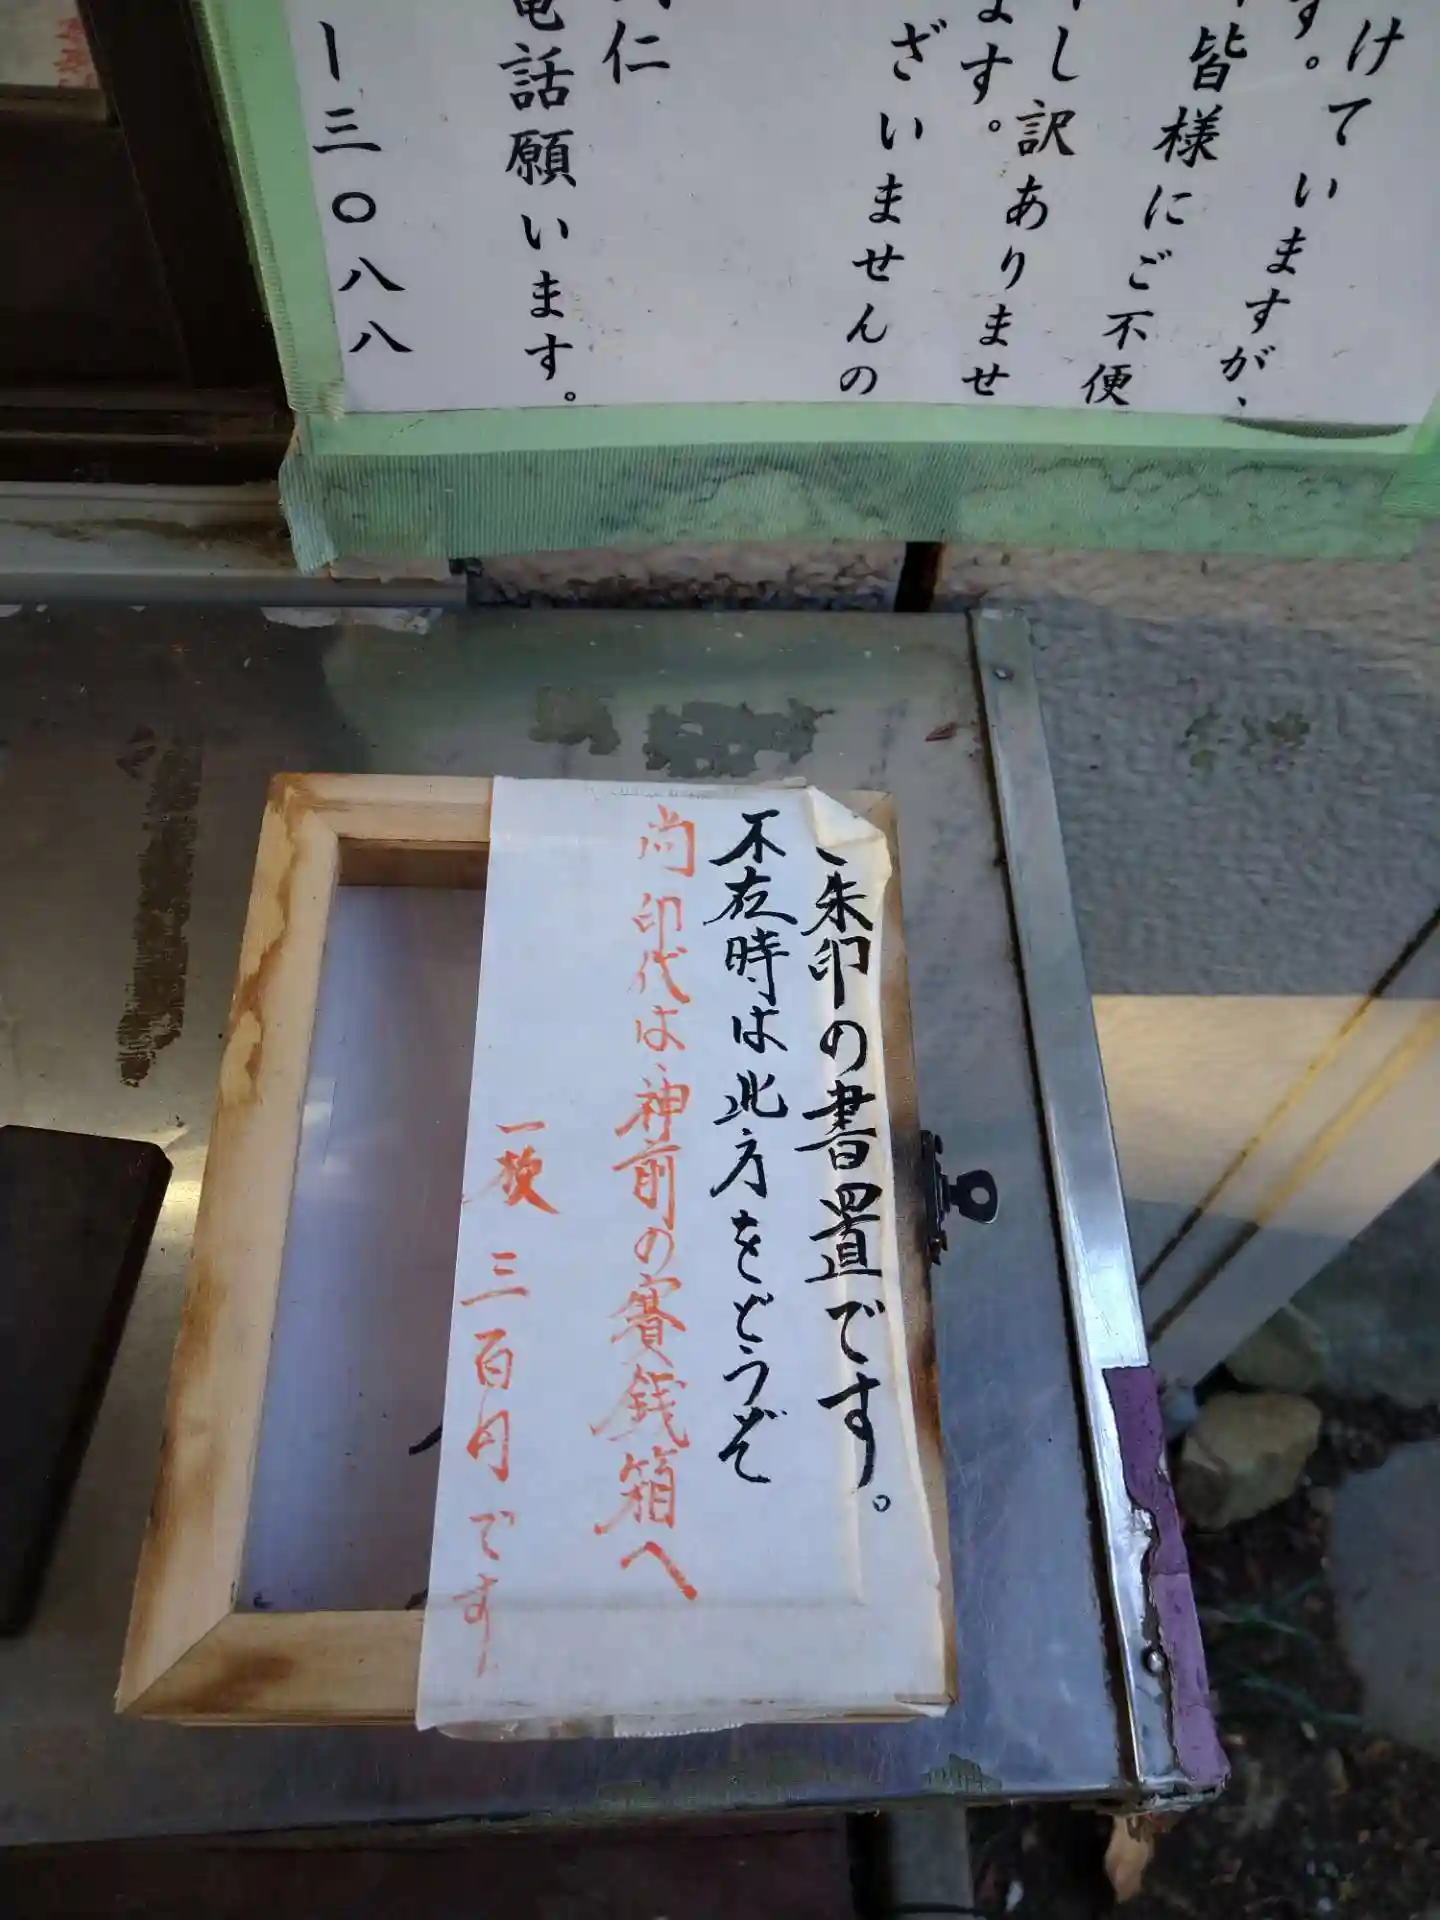 けていますが、
す。
皆様にご不便
し訳ありませ
ます。
ざいませんの
仁
電話願います。
ー三〇八八
朱印の書置です。
不在時は此方をどうぞ
尚印代は、神前の賽銭箱へ
一枚 三百円です